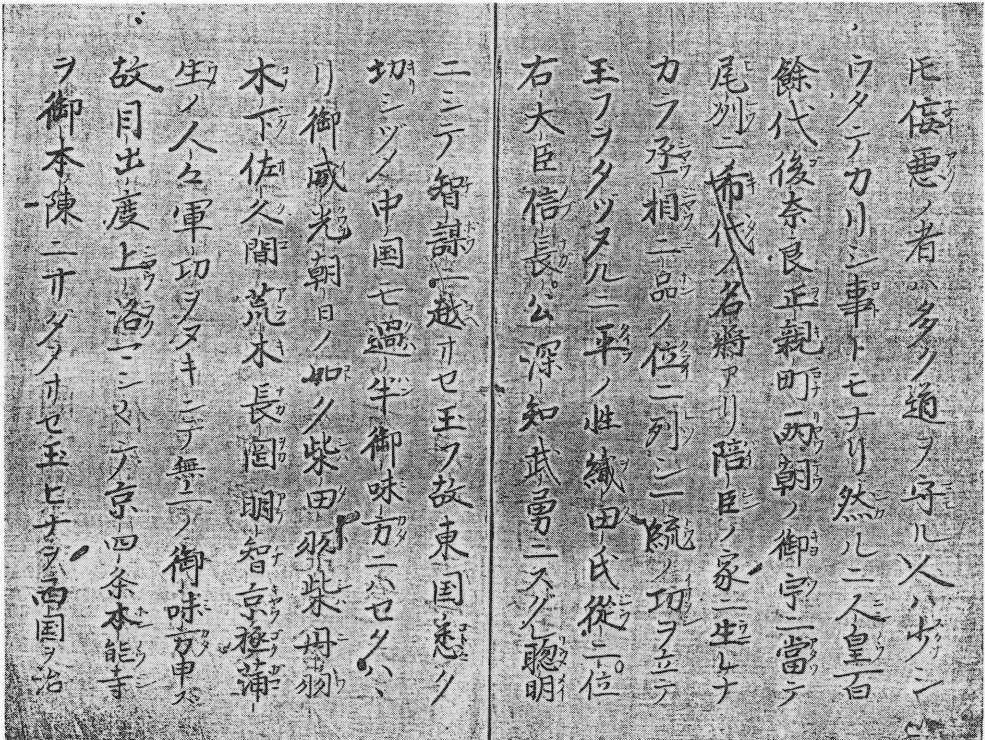 モ侫悪ノ者ハ多ク道ヲ守ル人ハ少シ
ウタテカリシ事トモナリ然ルニ人皇百
餘代後奈良正親町両朝ノ御宇ニ當テ
尾州ニ希代ノ名將アリ陪臣ノ家ニ生レナ
カラ丞相二品ノ位ニ列シ一統ノ功ヲ立テ
玉フヲタツヌルニ平ノ姓織田氏從二位
右大臣信長公深知武勇ニスク聰明
ニシテ智謀ニ越サセ玉フ故東国悉ク
切シツメ中国モ過半御味方ニハセクハヽ
リ御威光朝日ノ如ク柴田羽柴丹羽
木下佐久間荒木長岡明智京極蒲
生ノ人々軍功ヲヌキンテ無二ノ御味方申ス
故目出度上洛マシ〳〵テ京四条本能寺
ヲ御本陳ニサダメサセ玉ヒナヲ西国ヲ治